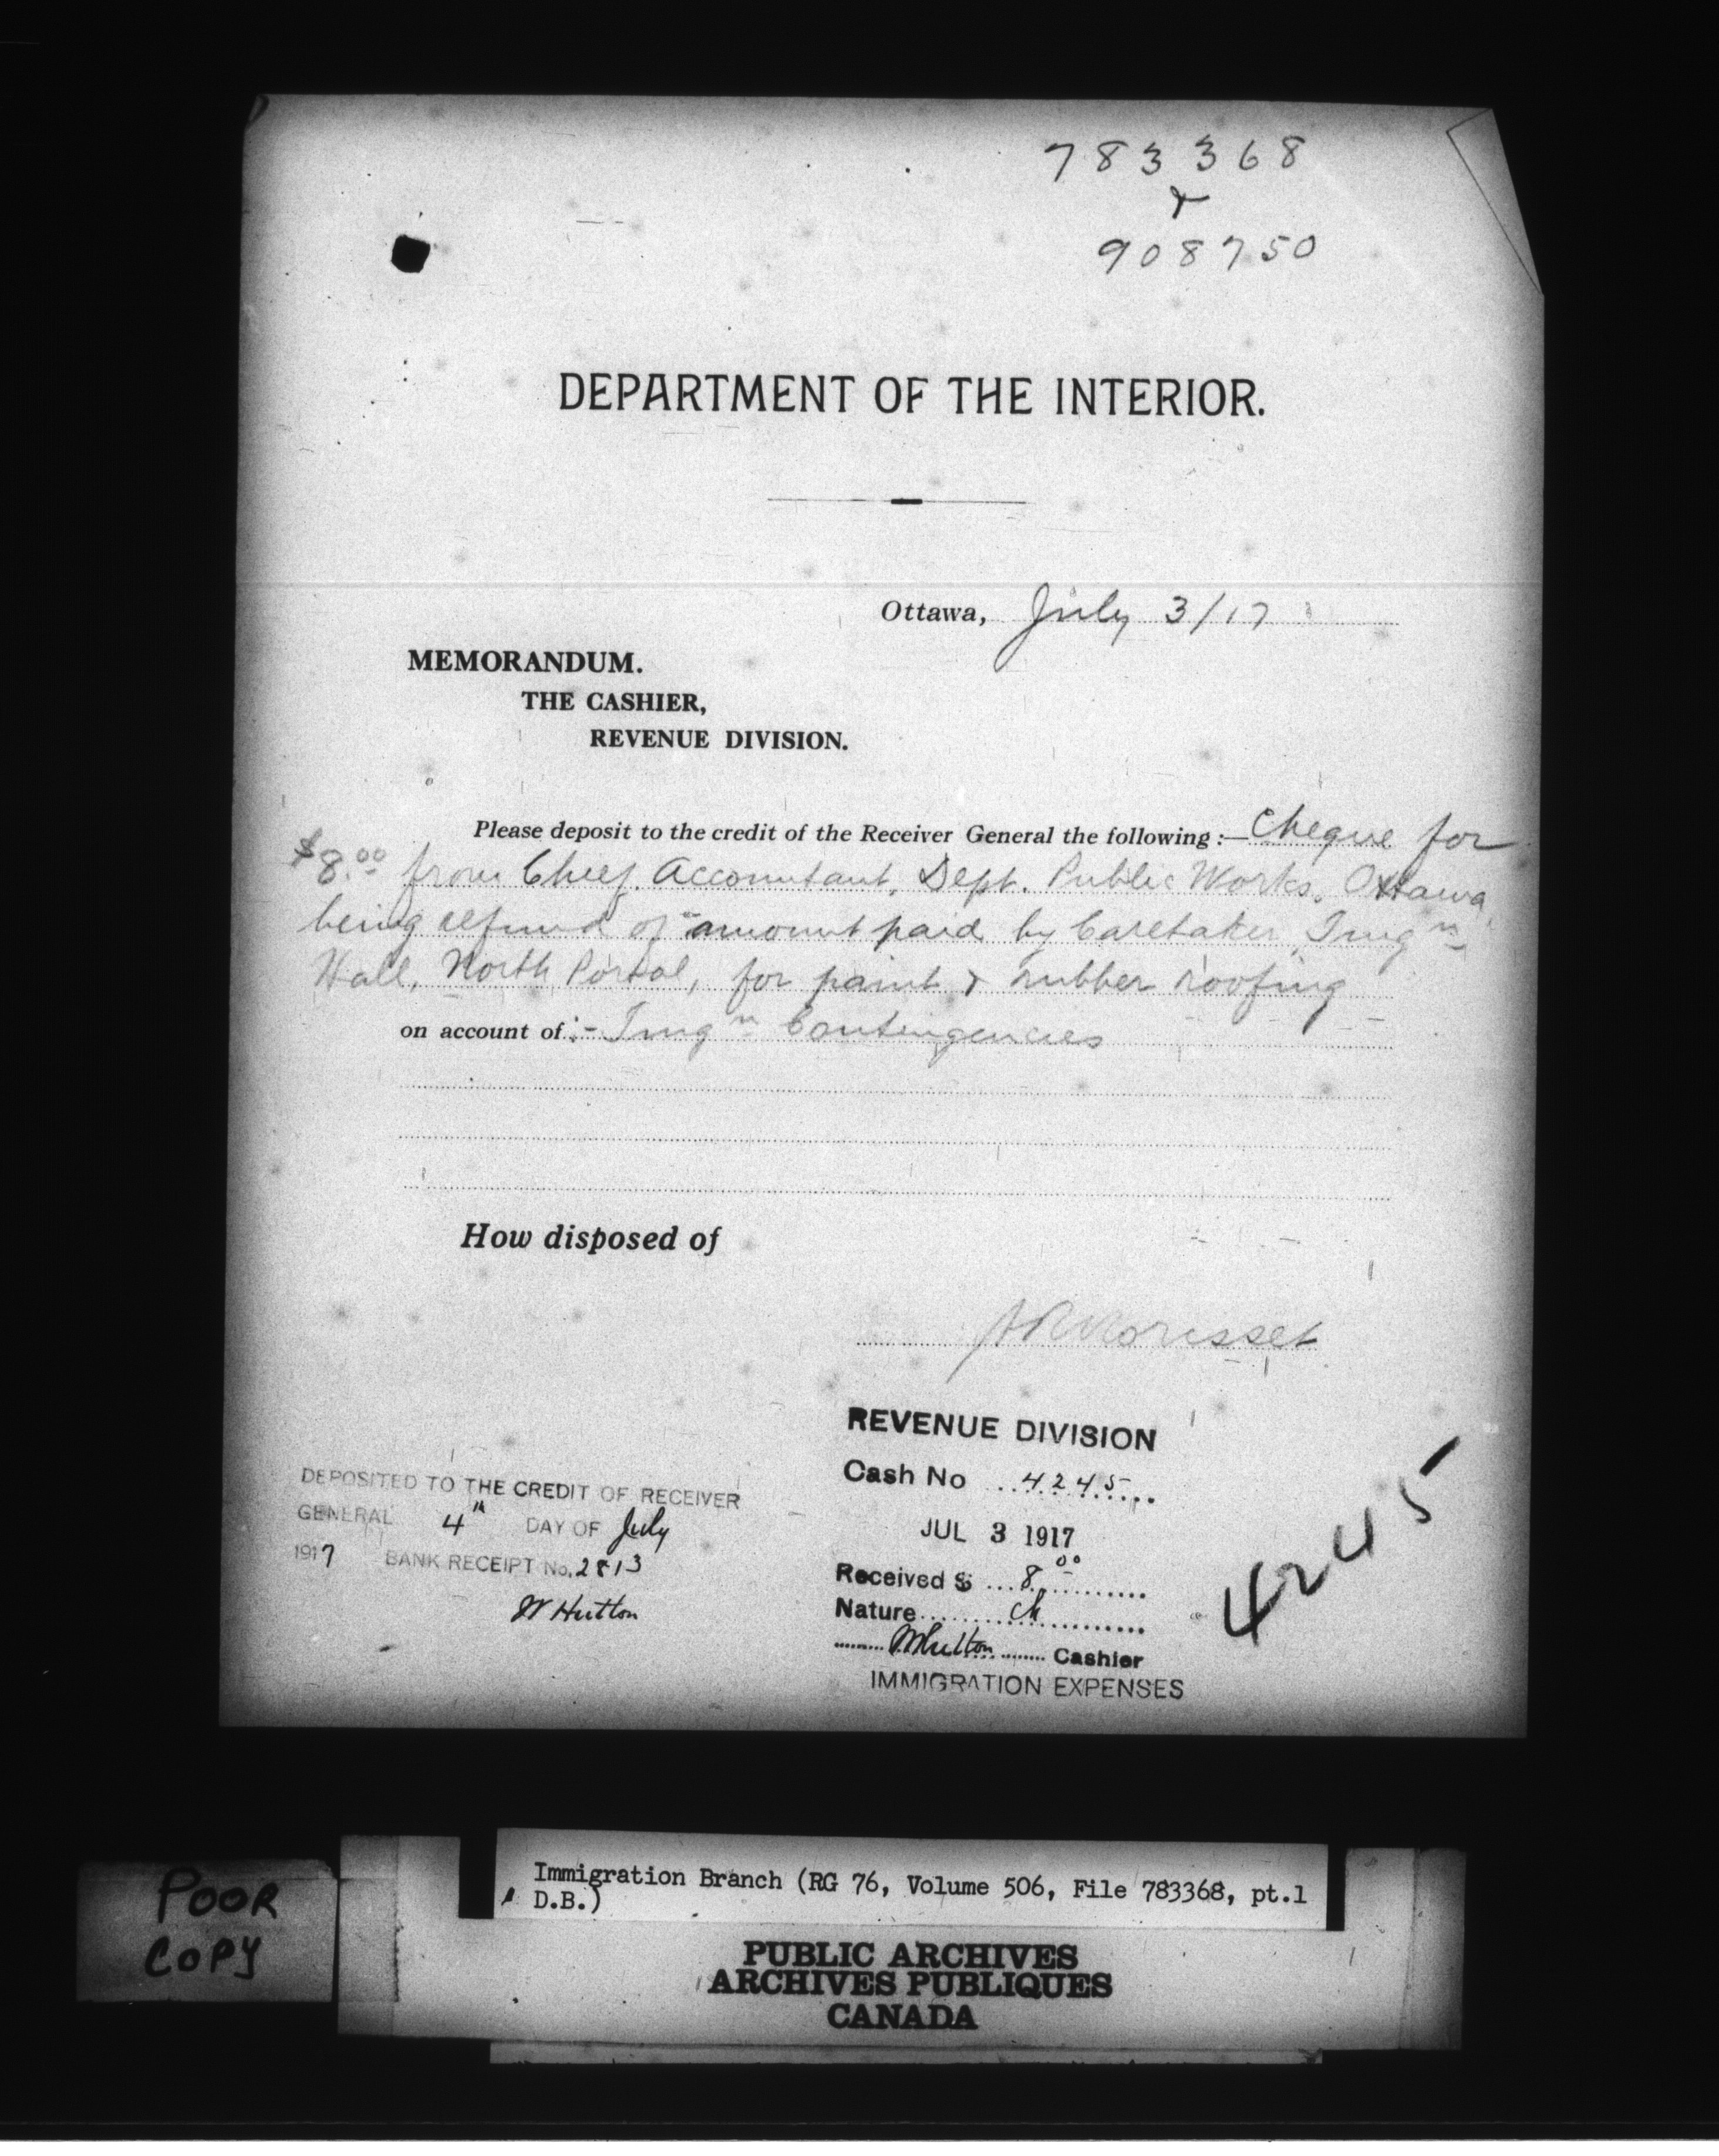 783368
&
908750
DEPARTMENT OF THE INTERIOR.
Ottawa, July 3/17
MEMORANDUM.
THE CASHIER,
REVENUE DIVISION.
Please deposit to the credit of the Receiver General the following:— Cheque for
$8.00 from Chief Accountant, Dept. Public Works, Ottawa,
being refund of amount paid by Caretaker Imgn
Hall, North Portal, for paint & rubber roofing
on account of:- Imgn Contingencies
How disposed of
Morisset
REVENUE DIVISION
Cash No 4245
JUL 3 1917
Received $ 8.00
Nature ch
W Hutton Cashier
IMMIGRATION EXPENSES
DEPOSITED TO THE CREDIT OF RECEIVER
GENERAL 4th DAY OF July
1917 BANK RECEIPT No. 2813
W Hutton
4245
POOR
COPY
Immigration Branch (RG 76, Volume 506, File 783368, pt.1
D.B.)
PUBLIC ARCHIVES
ARCHIVES PUBLIQUES
CANADA